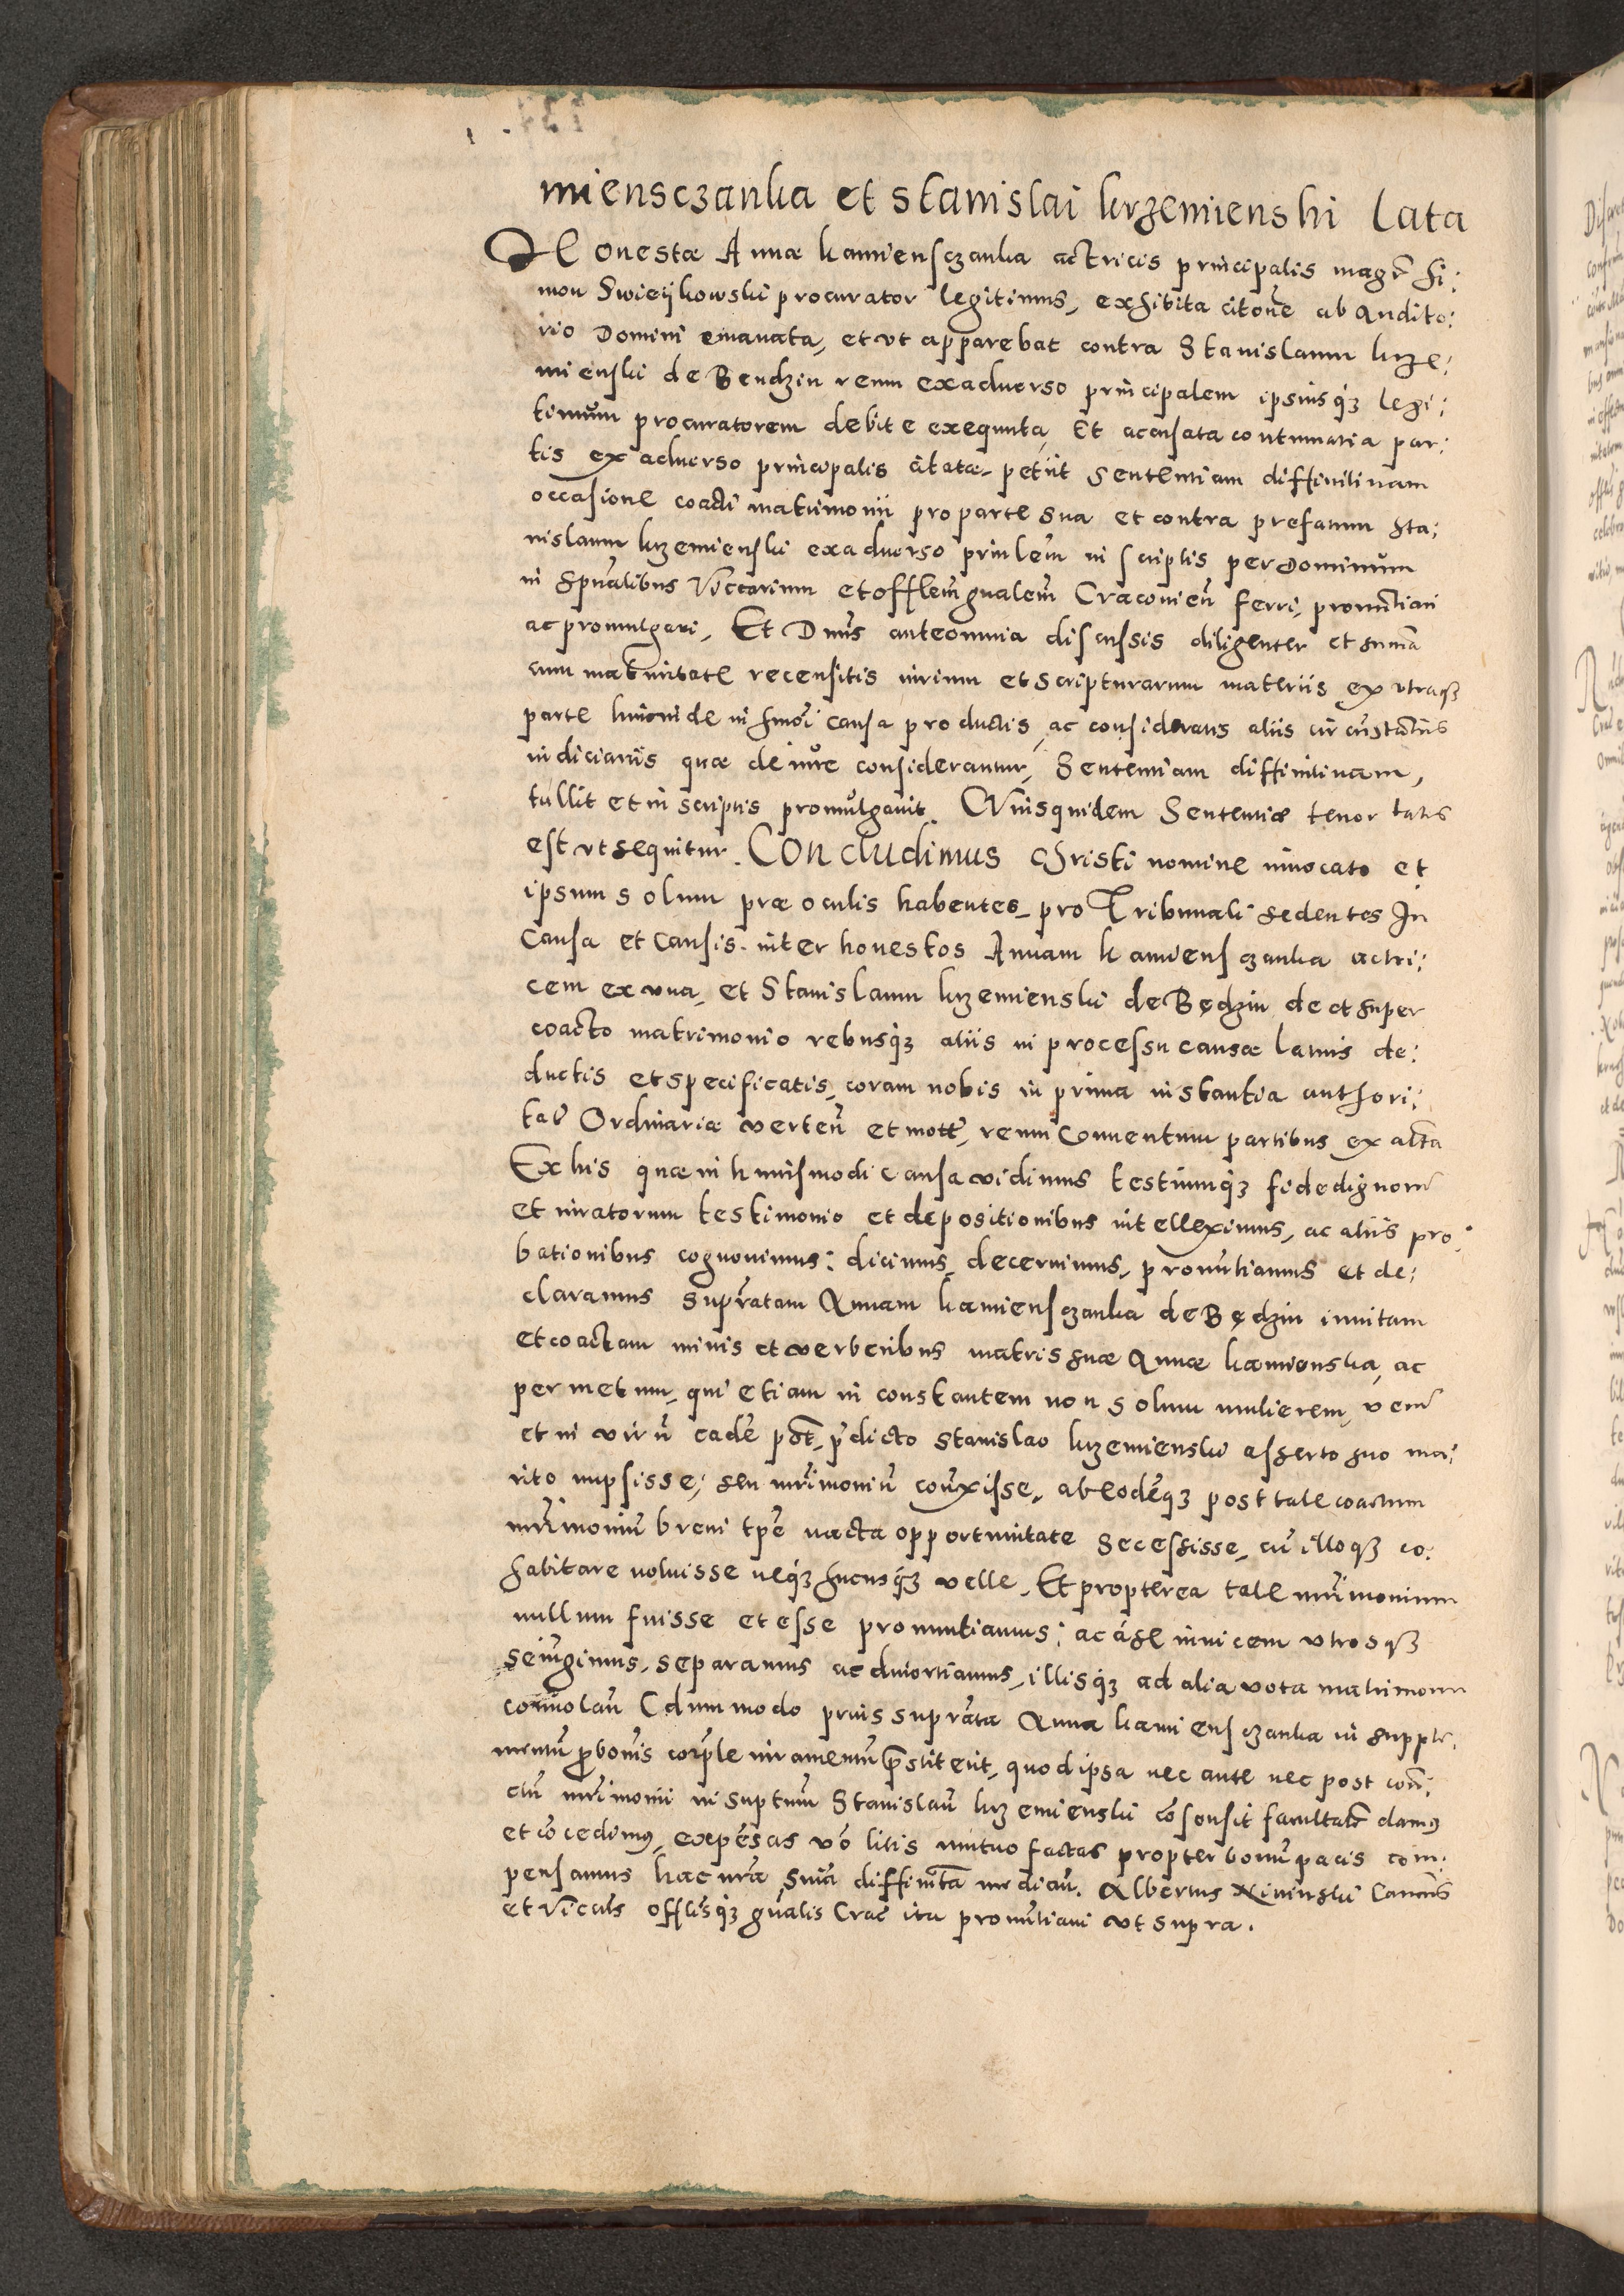 miensczanka et Stanislai krzemienski Lata
Honestæ Annæ kamiensczanka actricis principalis magr̃ Si:
mon Swieijkowski procurator legitimus, exhibita citoñe ab Audito:
rio Domini emanata, et vt apparebat contra Stanislaum krze:
mienski de Bendzin reum exaduerso principalem ipsiusq₃ legi:
timum procuratorem debite exequuta, Et accusata contumatia par:
tis ex aduerso principalis citatæ, petiit Sententiam diffinitiuam
occasione coacti matrimonii pro parte sua et contra prefatum Sta:
nislaum krzemienski exaduerso prinlem̃ in scriptis per Dominum
in Spũalibus Viccarium et offlem̃ gñalem̃ Cracouieñ ferri, pronũtiari
ac promulgari, Et Dñus ante omnia discussis diligenter et sum̃a
cum maturitate recensitis iurium et scripturarum materiis ex vtraq₃
parte hincinde in hmoi causa productis, ac considerans aliis circũstãtiis
indiciariis quæ de iure considerantur, Sententiam diffinitiuam,
tullit et in scriptis promulgauit. CVius quidem Sententiæ tenor talis
est vt sequitur. Concludimus Christi nomine inuocato et
ipsum solum præ oculis habentes, pro Tribunali sedentes In
Causa et Causis. inter honestos Annam kamiensczanka actri:
cem ex vna, et Stanislaum krzemienski de Będzin de et super
coacto matrimonio rebusq₃ aliis in processu causæ latius de:
ductis et specificatis, coram nobis in prima instantia authori:
tat̃ Ordinariæ verteñ et mott̃, reum Conuentum partibus ex alt̃a
Ex his quæ in huiusmodi causa vidimus testiumq₃ fidedignor̃
et iuratorum testimonio et depositionibus intelleximus, ac aliis pro:
bationibus cognouimus: dicimus, decernimus, pronũtiamus et de:
claramus supr̃atam Annam kamiensczanka de Będzin inuitam
et coactam minis et verberibus matris suæ Annæ kamienska, ac
per metum, qui etiam in constantem non solum mulierem, veru͂
et in virũ cadẽ põt, p̃dicto Stanislao krzemienski asserto suo ma:
rito nupsisse, seu mr̃imoniũ cont̃xisse, ab eodẽq₃ post tale coactum
mr̃imoniũ breui tpẽ nacta opportunitate Secessisse, cũ illoq₃ co:
habitare noluisse neq₃ hucusq₃ velle, Et propterea tale mr̃imonium
nullum fuisse et esse pronuntiamus: ac a se inuicem vtrosq₃
seiũgimus, separamus ac diuortiamus, illisq₃ ad alia vota matrimonii
conuolañ (dummodo prius supr̃ata Anna kamiensczanka in supple:
mentũ p̃bonis corp̃le iuramentũ p̃stiterit, quod ipsa nec ante nec post cont̃:
ctũ mr̃imonii in suptum̃ Stanislaũ krzemienski cõsensit facultatẽ damus
et cõcedimus, expẽsas võ litis mutuo factas propter bonũ pacis com:
pensamus hac nr̃a sñia diffinit̃a mediañ. Albertus Canõus
et Viccãls offlisq₃ gñalis Crac̃ ita pronũtiaui vt supra.